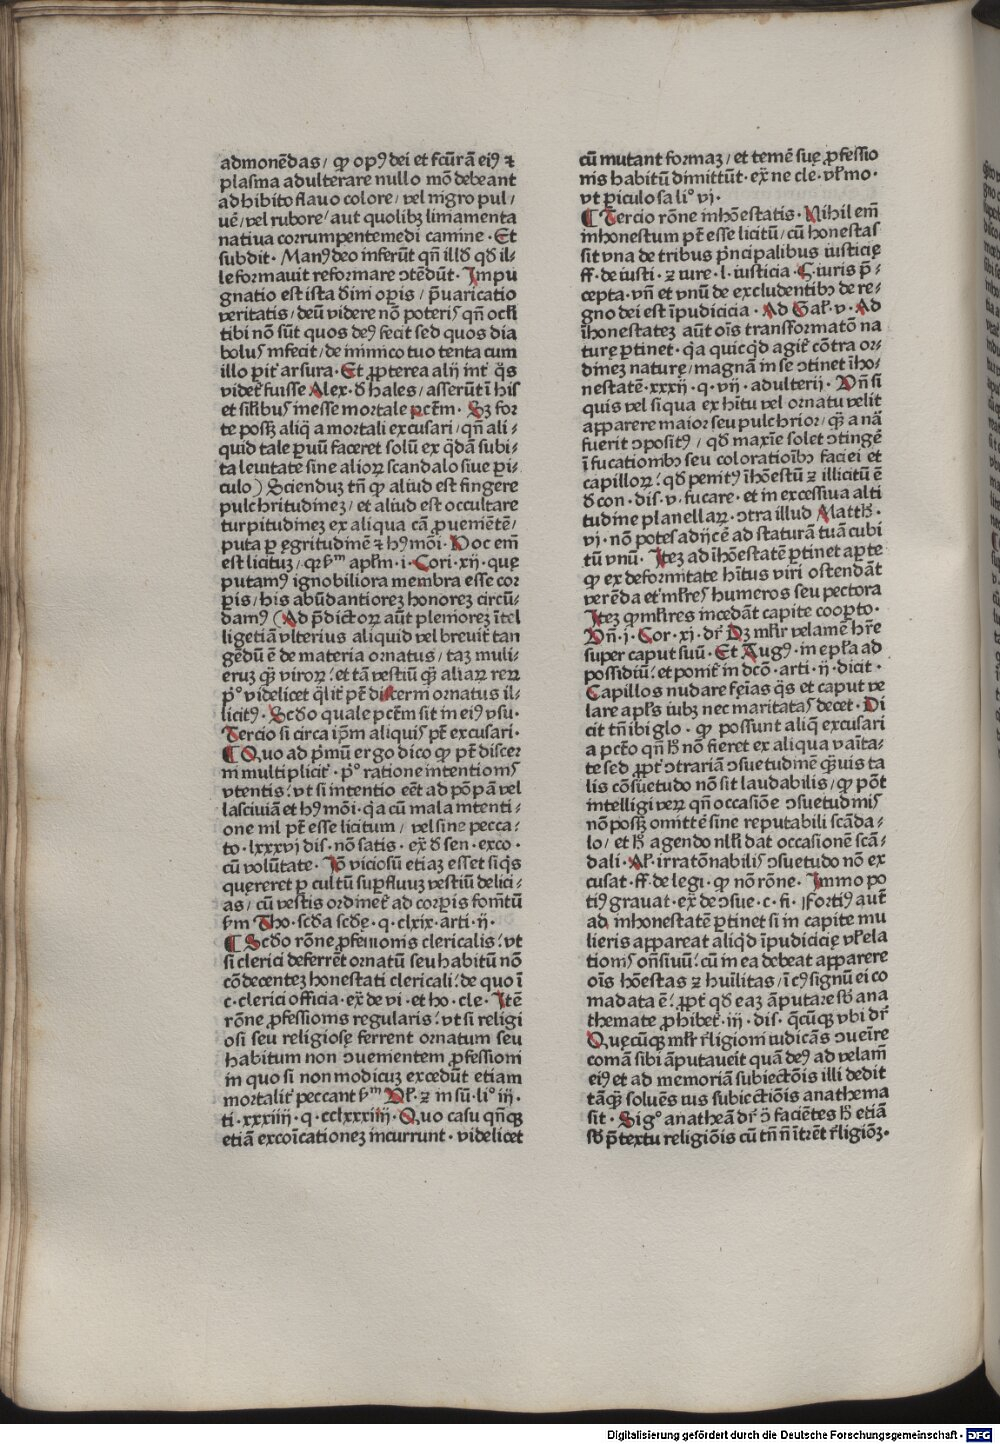 admonēdas / ꝙ opꝰ dei et fcūrā eiꝰ ⁊
plasma adulterare nullo mō debeant
adhibito flauo colore / vel nigro pul /
uē / vel rubore / aut quolibꝫ liniamenta
natiua corrumpente medicamine · Et
subdit · Manꝰ deo inferūt qn̄ illđ qđ il-
le formauit reformare ↄtēdūt · Impu
gnatio est ista diīn opis / p̄uaricatio
veritatis / deū videre nō poteris qn̄ ocłi
tibi nō sūt quos deꝰ fecit sed quos dia
bolus infecit / de inimico tuo tenta cum
illo pit̄ arsura · Et ꝓpterea alij int̄ q̄s
videt̄ fuisse Alex · đ hales / asserūt ī his
et silibꝰ inesse mortale pctm̄ · Sꝫ for
te possꝫ aliq̄ a mortali excusari / qn̄ ali-
quid tale ꝑuū faceret solū ex q̄dā subi-
ta leuitate sine alioꝝ scandalo siue ꝑi-
culo) Scienduꝫ tn̄ ꝙ aliud est fingere
pulchritudineꝫ / et aliud est occultare
turpitudineꝫ ex aliqua cā ꝓuenietē /
puta ꝑ ęgritudinē ⁊ hꝰmōi · Hoc em̄
est licituꝫ / qꝛ ẜm apłm · i · Cori · xij · quę
putamꝰ ignobiliora membra esse cor
pis / his abūdantioreꝫ honoreꝫ circū-
damꝰ (Ad p̄dictoꝝ aūt plenioreꝫ ītel
ligetiā vlterius aliquid vel breuit̄ tan
gēdū ē de materia ornatus / taꝫ muli-
eruꝫ q̄ȝ viroꝝ · et tā vestiū q̄ȝ aliaꝝ reꝝ
p̊ videlicet q̄lit̄ pt̄ discerni ornatus il-
licitꝰ · Scđo quale pctm̄ sit in eiꝰ vsu ·
Tercio si circa ip̄m aliquis pt̄ excusari ·
¶ Quo ad p̄mū ergo dico ꝙ pt̄ discer
ni multiplicit̄ · p̊ ratione intentionis
vtentis · vt si intentio eēt ad pōpā vel
lasciuiā et hꝰmōi · q̄a cū mala intenti-
one nil pt̄ esse licitum / vel sine pecca-
to · lxxxvj dis · nō satis · ex̄ đ sen · exco ·
cū volūtate · Iō viciosū etiaꝫ esset siq̄s
quęreret ꝑ cultū supfluuꝫ vestiū delici-
as / cū vestis ordinet̄ ad corpis fom̄tū
ẜm Tho · scđa scđę · q · clxix · arti · ij ·
¶ Scđo rōne ꝓfessionis clericalis · vt
si clerici deferrēt ornatū seu habitū nō
cōdecenteꝫ honestati clericali · de quo ī
c · clerici officia · ex̄ de vi · et ho · cle · Itē
rōne ꝓfessionis regularis · vt si religi
osi seu religiosę ferrent ornatum seu
habitum non ↄuenientem ꝓfessioni
in quo si non modicuꝫ excedūt etiam
mortalit̄ peccant ẜm Vł · ⁊ in sū · li° iij ·
ti · xxxiiij · q · cclxxxiiij · Quo casu qn̄qꝫ
etiā excoīcationeꝫ incurrunt · videlicet
cū mutant formaꝫ / et temē suę ꝓfessio
nis habitū dimittūt · ex̄ ne cle · vł mo ·
vt ꝑiculosa li° vj ·
¶ Tercio rōne inhōestatis · Nihil em̄
inhonestum pt̄ esse licitū / cū honestas
sit vna de tribus p̄ncipalibus iusticię
ff · de iusti · ⁊ iure · l · iusticia · § · iuris p̄-
cepta · vn̄ et vnū de excludentibꝫ de re-
gno dei est īpudicicia · Ad Gał · v · Ad
īhonestateꝫ aūt oīs transformatōn na
turę ꝑtinet · q̄a quicq̄d agit̄ cōtra or-
dineꝫ naturę / magnā in se ↄtinet īho-
nestatē · xxxij · q · vij · adulterij · Vn̄ si
quis vel siqua ex hītu vel ornatu velit
apparere maior seu pulchrior / q̄ȝ a nā
fuerit ↄpositꝰ / qđ maxīe solet ↄtingē
ī fucationibꝫ seu coloratioībꝫ faciei et
capilloꝝ · qđ penitꝰ īhōestū ⁊ illicitū ē
đ con · dis · v · fucare · et in excessiua alti
tudine planellaꝝ · ↄtra illud Matth̄ ·
vj · nō potes adijcē ad staturā tuā cubi
tū vnū · Iteꝫ ad īhōestatē ꝑtinet apte
ꝙ ex deformitate hītus viri ostendāt
verēda et mł̄res humeros seu pectora
Iteꝫ ꝙ mł̄res incedāt capite coopto ·
Vn̄ · j · Cor · xj · dr̄ Dꝫ mł̄ir velamē hr̄e
super caput suū · Et Augꝰ · in epła ad
possidiū · et ponit̄ in dcō · arti · ij · dicit ·
Capillos nudare fēias q̄s et caput ve
lare apłs iubꝫ nec maritatas decet · Di
cit tn̄ ibi glo · ꝙ possunt aliq̄ excusari
a pctō qn̄ ħ nō fieret ex aliqua vaīta-
te sed ꝓpt̄ ↄtrariā ↄsuetudinē q̄ȝuis ta
lis cōsuetudo nō sit laudabilis / ꝙ pōt
intelligi veꝝ qn̄ occasiōe ↄsuetudinis
nō possꝫ omittē sine reputabili scāda-
lo / et ħ agendo nłłi dat occasionē scā-
dali · Ał · irratōnabilis ↄsuetudo nō ex
cusat · ff · de legi · ꝙ nō rōne · Immo po
tiꝰ grauat · ex̄ de ↄsue · c · fi · Fortiꝰ aūt
ad inhonestatē ꝑtinet si in capite mu
lieris appareat aliq̄d īpudicicię vł ela
tionis on̄siuū · cū in ea debeat apparere
oīs hōestas ⁊ huīlitas / ī cꝰ signū ei co
ma data ē · ꝓpt̄ qđ eaꝫ āputare sb̄ ana
themate ꝓhibet̄ · iij · dis · q̄cūqꝫ vbi dr̄
Quęcūqꝫ mł̄r r̄ligioni iudicās ↄueīre
comā sibi āputaueit quā deꝰ ad velam̄
eiꝰ et ad memoriā subiectōis illi dedit
tāq̄ȝ soluēs ius subiectiōis anathema
sit · Sigº anatheā dr̄ ↄ̄ faciētes ħ etiā
sb̄ p̄textu religiōis cū tn̄ n̄ ītrēt r̄ligiōꝫ ·
Digitalisierung gefördert durch die Deutsche Forschungsgemeinschaft · DFG